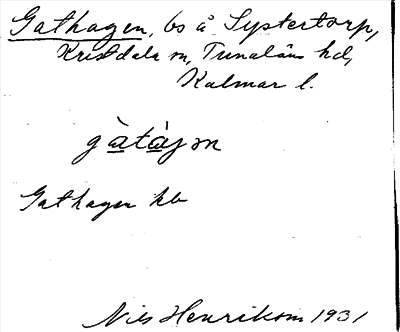 Gathagen, bs å Systertorp,
Kristdala sn, Tunaläns hd,
Kalmar l.
gàtáȷən
Gathagen kb
Nils Henrikson 1931